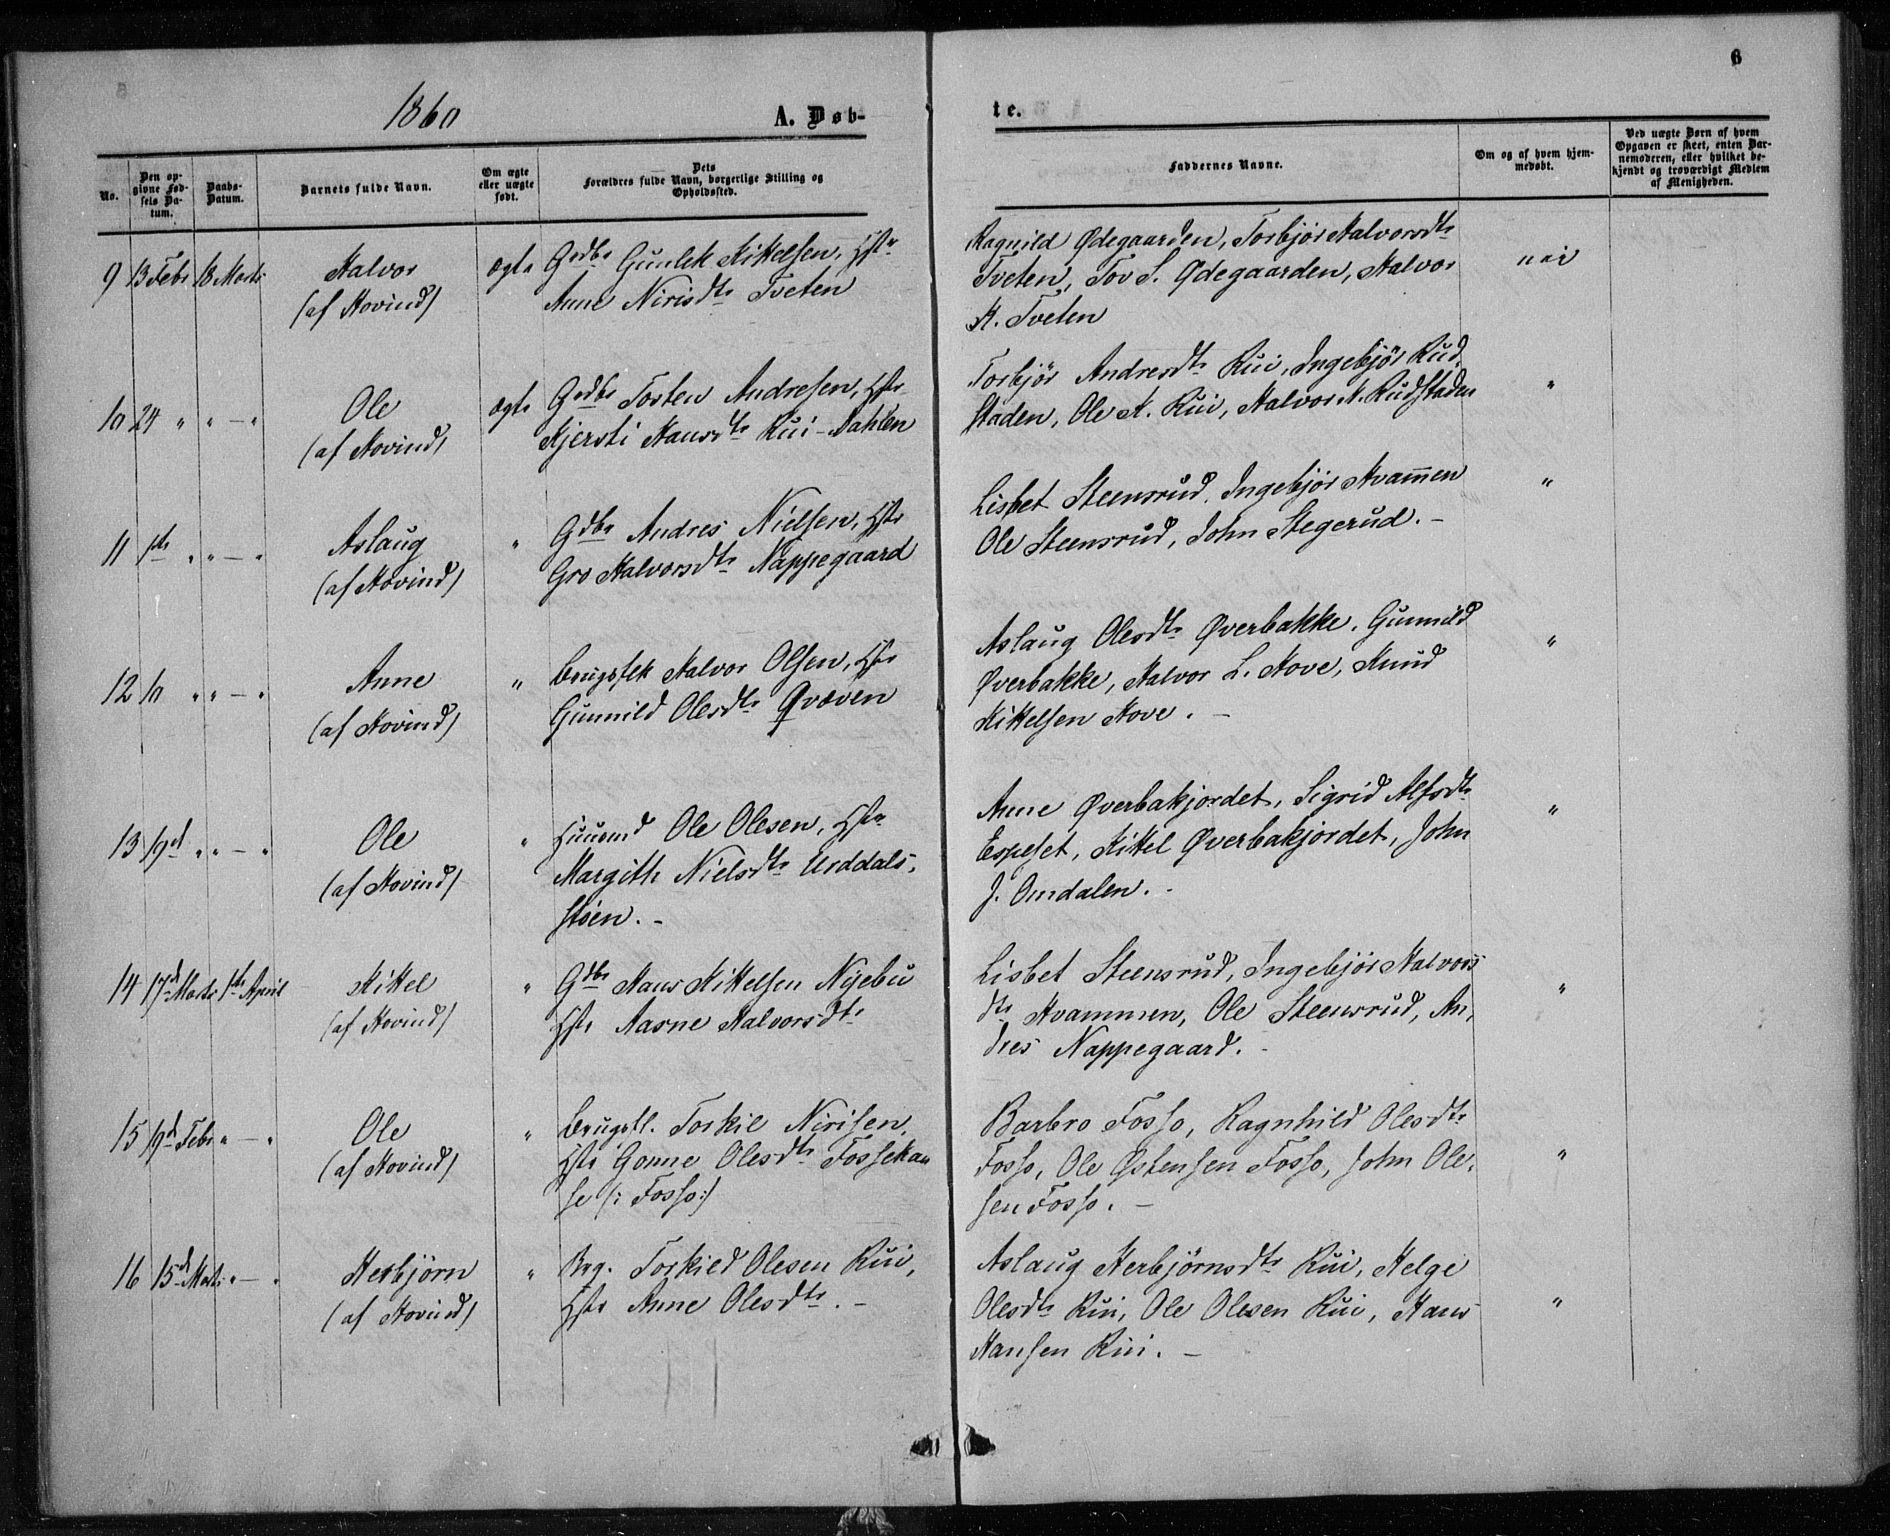 6
1860
A. Døb-
te.
No.
Den op-
givne Fød-
sels Da-
tum.
Daabs-
Datum.
Barnets fulde Navn.
Om ægte
eller uægte
født.
Dets
Forældres fulde Navn, borgerlige Stilling og
Opholdssted.
Faddernes Navne.
Om og af hvem hjem-
medøbt.
Ved uægte Børn af hvem
Opgaven er skeet, enten Bar-
nemoderen, eller hvilket be-
kjendt og troværdigt Medlem
af Menigheden.
9 13 Febr 18 Marts Halvor ægte Grdbr Gunlek Kittelsen, Hstr
(af Hovind) Anne Nirisdtr Tveten
Ragnild Ødegaarden, Torbjør Halvorsdtr nei
Tveten, Tov S. Ødegaarden, Halvor
K. Tveten
10 24 " " — " Ole ægte Grdbr Tosten Andresen, Hstr
(af Hovind) Kjersti Hansdtr Rui-Dahlen
Torbjør Andresdtr Rui, Ingebjør Rud "
staden, Ole K. Rui, Halvor N. Rudstaden
11 1ste " " — " Aslaug " Gdbr Andres Nielsen, Hstr
(af Hovind) Gro Halvorsdtr Nappegaard
Lisbet Steensrud, Ingebjør Hvam̄en "
Ole Steensrud, John Stegerud. —
12 10 " " — " Anne " Brugsfek Halvor Olsen, Hstr
(af Hovind) Gunnild Olesdtr Qvæven
Aslaug Olesdtr Øverbakke, Gunnild "
Øverbakke, Halvor L. Hove, Knud
Kittelsen Hove. —
13 19d " " — " Ole " Huusmd Ole Olesen, Hstr
(af Hovind) Margith Nielsdtr Urddals-
støen. —
Anne Øverbakjordet, Sigrid Alfsdtr "
Espeset, Kittel Øverbakjordet, John
J. Omdalen. -
14 17d Marts 1ste April Kittel " Gdbr Hans Kittelsen Nyebu
(af Hovind) Hstr Aasne Halvorsdtr
Lisbet Steensrud, Ingebjør Halvors "
dtr Hvammen, Ole Steensrud, An-
dres Nappegaard. -
15 19d Febr " — " Ole " Brugsfl. Torkil Nirisen,
(af Hovind) Hstr Gonne Olesdtr Fossekaa
se (: Fosso:)
Barbro Fosso, Ragnhild Olesdtr "
Fosso, Ole Østensen Fosso, John Ole-
sen Fosso. —
16 15d Marts " — " Herbjørn " Brg. Torkild Olesen Rui,
(af Hovind) Hstr Anne Olesdtr. —
Aslaug Herbjørnsdtr Rui, Helge "
Olesdtr Rui, Ole Olesen Rui, Hans
Hansen Rui. —